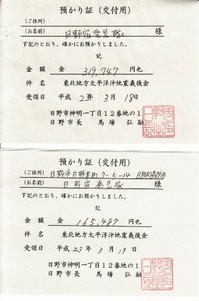 預かり証（交付用）
（ご住所）
（お名前） 様
下記のとおり、確かにお預かりしました。
記
金 額 金 319,747 円也
件 名 東北地方太平洋沖地震義援金
受領日 平成 23年 3月 18日
日野市神明一丁目12番地の1
日野市長 馬場 弘融
預かり証（交付用）
（ご住所） 日野市日野本町7-5-14
（お名前） 様
下記のとおり、確かにお預かりしました。
記
金 額 金 165,487 円也
件 名 東北地方太平洋沖地震義援金
受領日 平成 23年 3月 19日
日野市神明一丁目12番地の1
日野市長 馬場 弘融